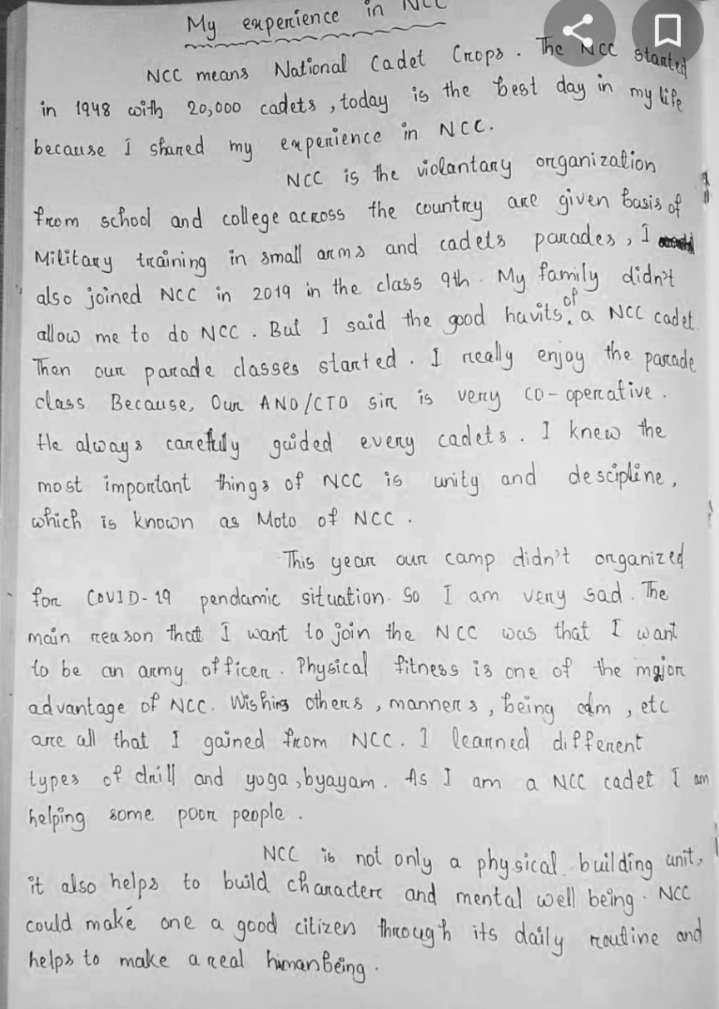 My experience in NCC
NCC means National Cadet Crops. The NCC started
in 1948 with 20,000 cadets, today is the best day in my life
because I shared my experience in NCC.
NCC is the violantary organization
from school and college across the country are given basis of
Military training in small arms and cadets parades, I
also joined NCC in 2019 in the class 9th. My family didn't
allow me to do NCC. But I said the good havits of a NCC cadet.
Then our parade classes started. I really enjoy the parade
class Because, Our ANO/CTO sir is very co-operative.
He always carefully guided every cadets. I knew the
most important things of NCC is unity and descipline,
which is known as Moto of NCC.
This year our camp didn't organized
for COVID-19 pendamic situation. So I am very sad. The
main reason that I want to join the NCC was that I want
to be an army officer. Physical fitness is one of the major
advantage of NCC. Wishing others, manners, being calm, etc
are all that I gained from NCC. I learned different
types of drill and yoga, byayam. As I am a NCC cadet I am
helping some poor people.
NCC is not only a physical building unit,
it also helps to build character and mental well being. NCC
could make one a good citizen through its daily routine and
helps to make a real human being.